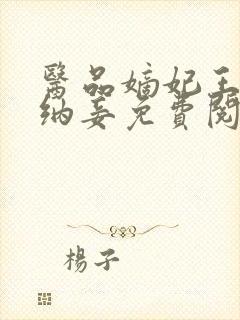 醫品嫡妃王
納妾免費閱
楊子